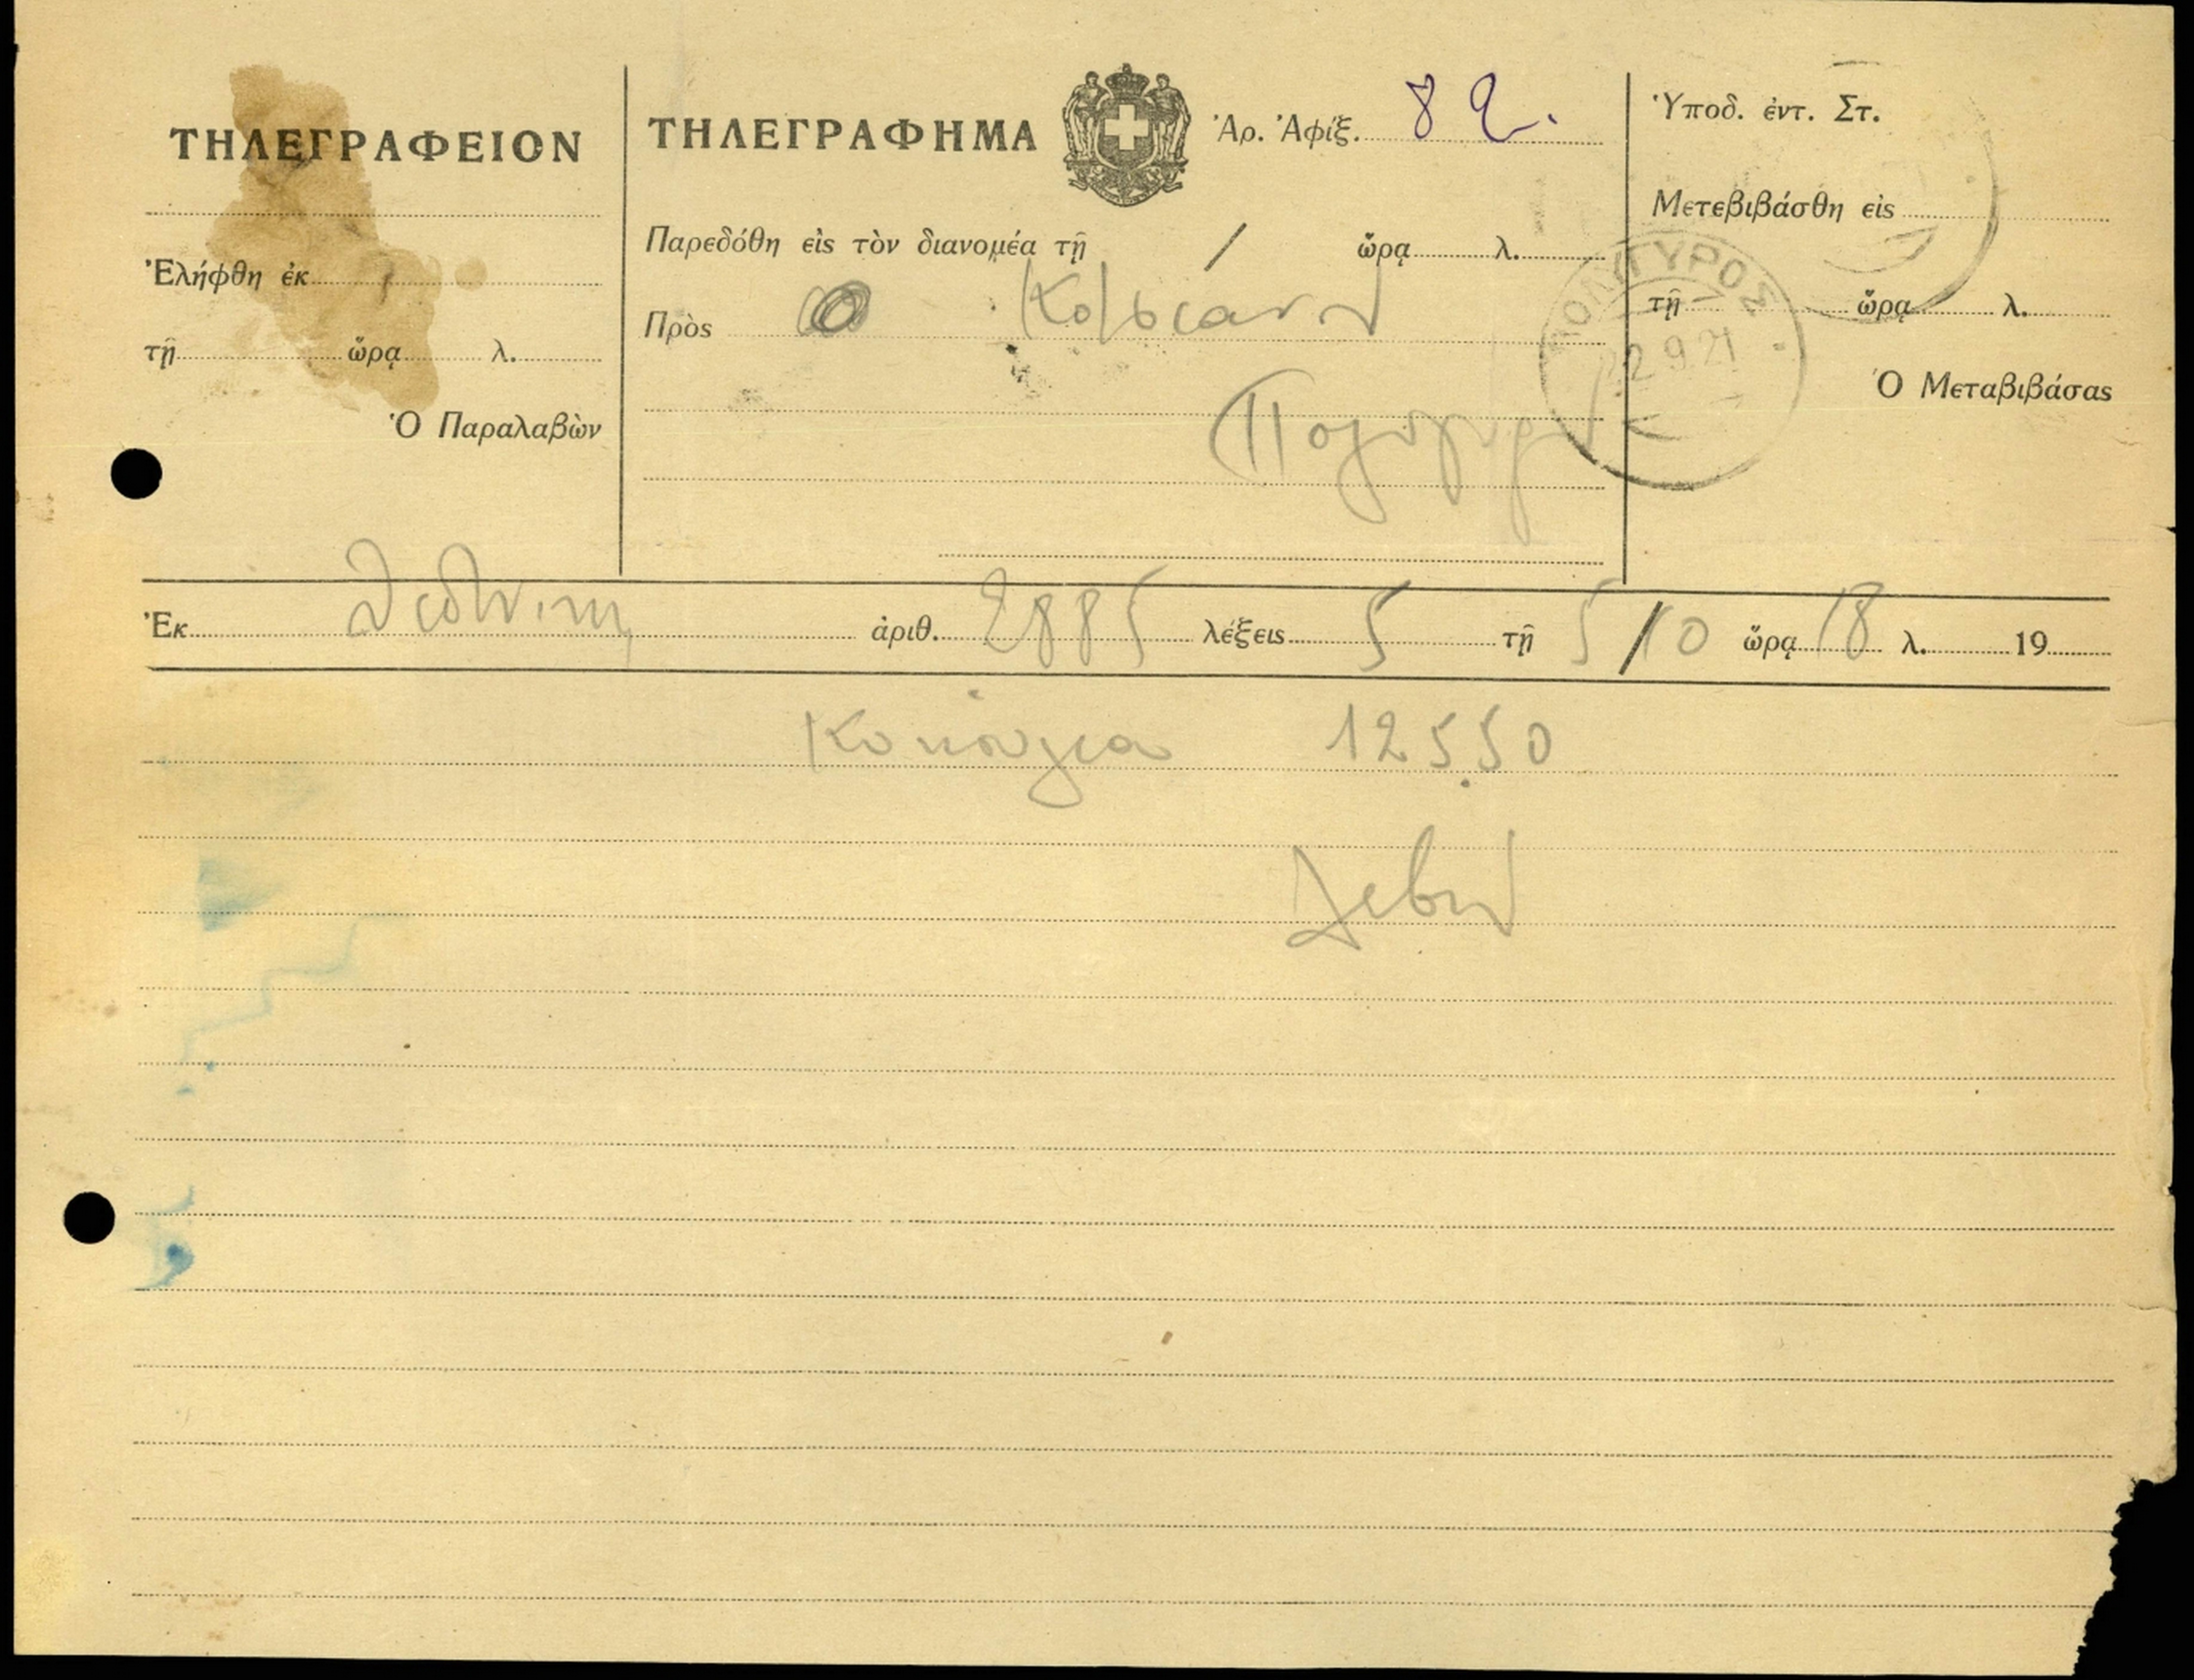 ΤΗΛΕΓΡΑΦΕΙΟΝ
Ἐλήφθη ἐκ
τῇ ὥρᾳ λ.
Ὁ Παραλαβὼν
ΤΗΛΕΓΡΑΦΗΜΑ Ἀρ. Ἀφίξ. 82.
Παρεδόθη εἰς τὸν διανομέα τῇ / ὥρᾳ λ.
Πρὸς
Πολύγυρον
Ὑποδ. ἐντ. Στ.
Μετεβιβάσθη εἰς
τῇ ὥρᾳ λ.
Ὁ Μεταβιβάσας
ΠΟΛΥΓΥΡΟΣ
Ἐκ Θεσ/νίκης ἀριθ. 2885 λέξεις 5 τῇ 5/10 ὥρᾳ 18 λ. 19
Κουκούλια 12550
Λεβή